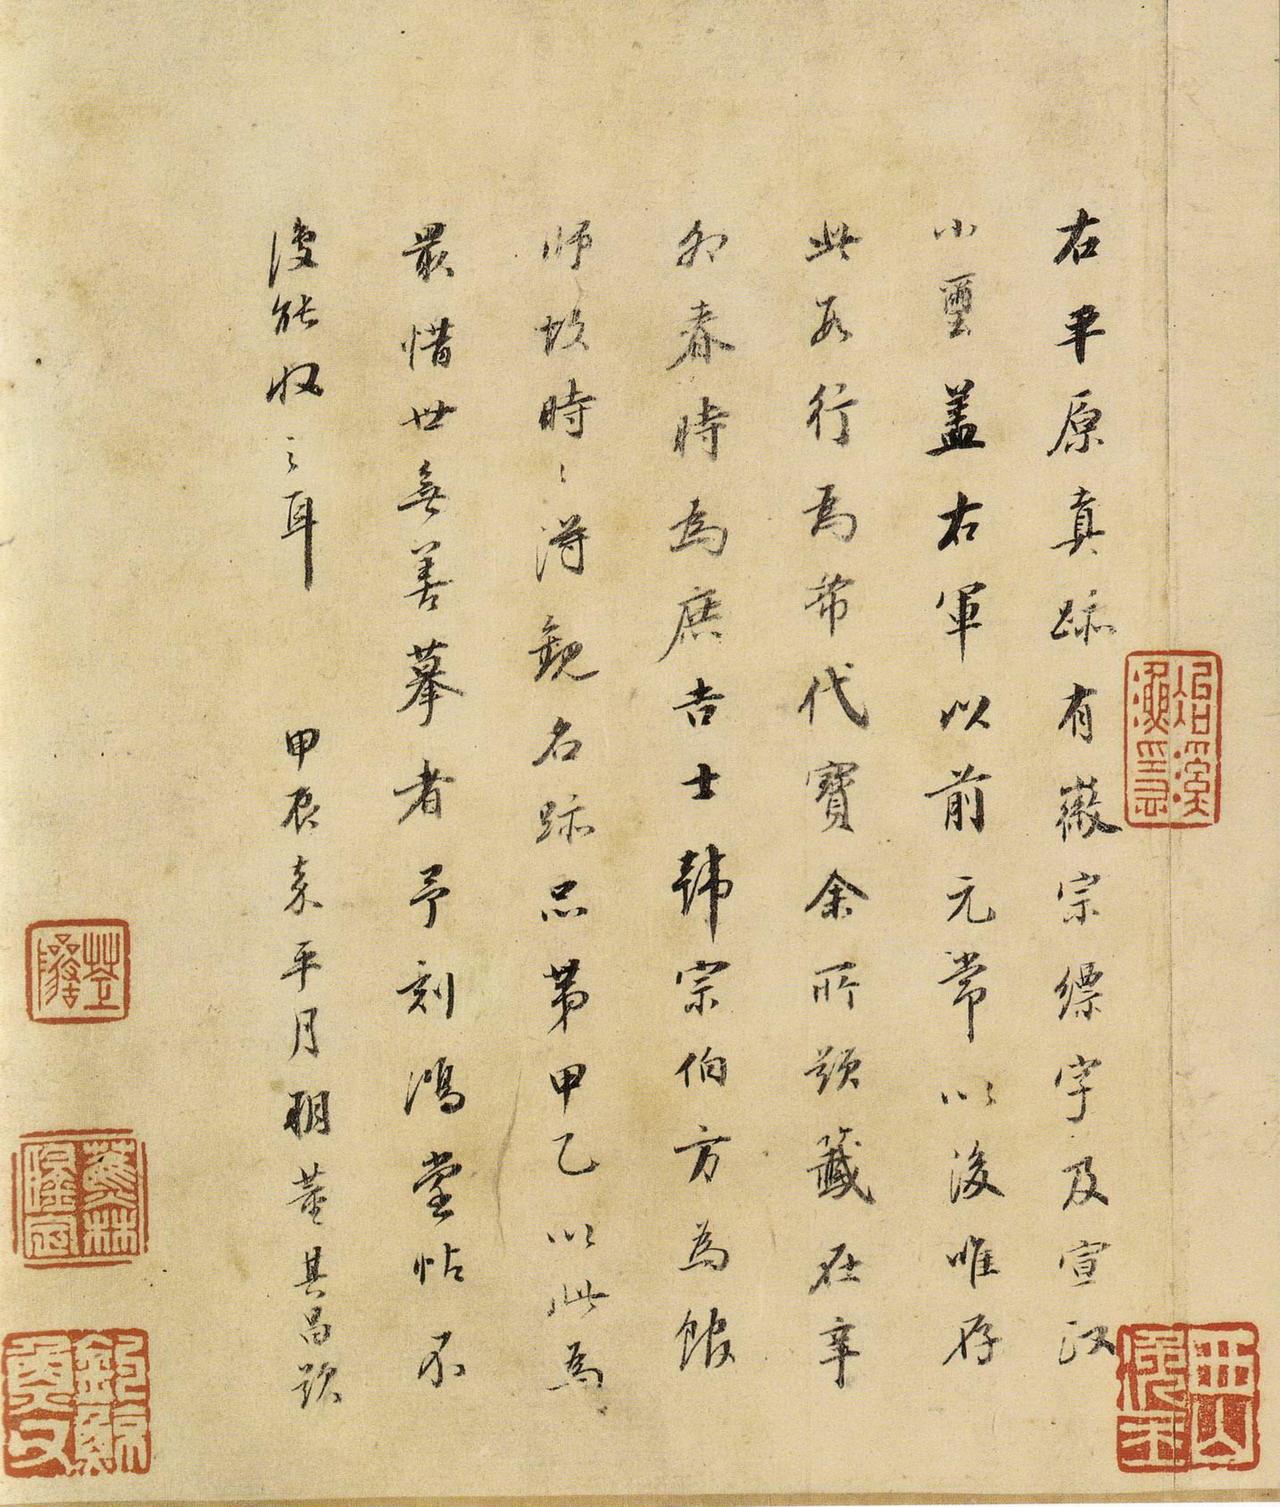 右平原真跡有徽宗縹字及宣政
小璽蓋右軍以前元常以後唯存
此數行為希代寶余所題籤在辛
卯春時為庶吉士韓宗伯方為館
師故時〻得觀名跡品第甲乙以此為
最惜世無善摹者予刻鴻堂帖不
復能收之耳　甲辰嘉平月朔董其昌題
蕉林